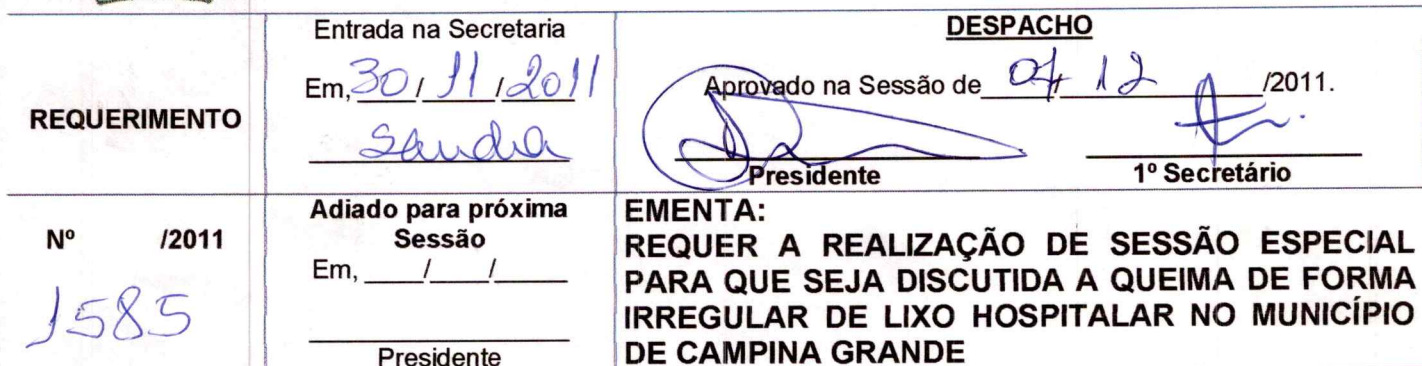 REQUERIMENTO
Entrada na Secretaria
Em, 30 / 11 / 2011
Sandra
DESPACHO
Aprovado na Sessão de 07 / 12 /2011.
Presidente
1º Secretário
Nº /2011
1585
Adiado para próxima
Sessão
Em, ____/____/____
Presidente
EMENTA:
REQUER A REALIZAÇÃO DE SESSÃO ESPECIAL
PARA QUE SEJA DISCUTIDA A QUEIMA DE FORMA
IRREGULAR DE LIXO HOSPITALAR NO MUNICÍPIO
DE CAMPINA GRANDE